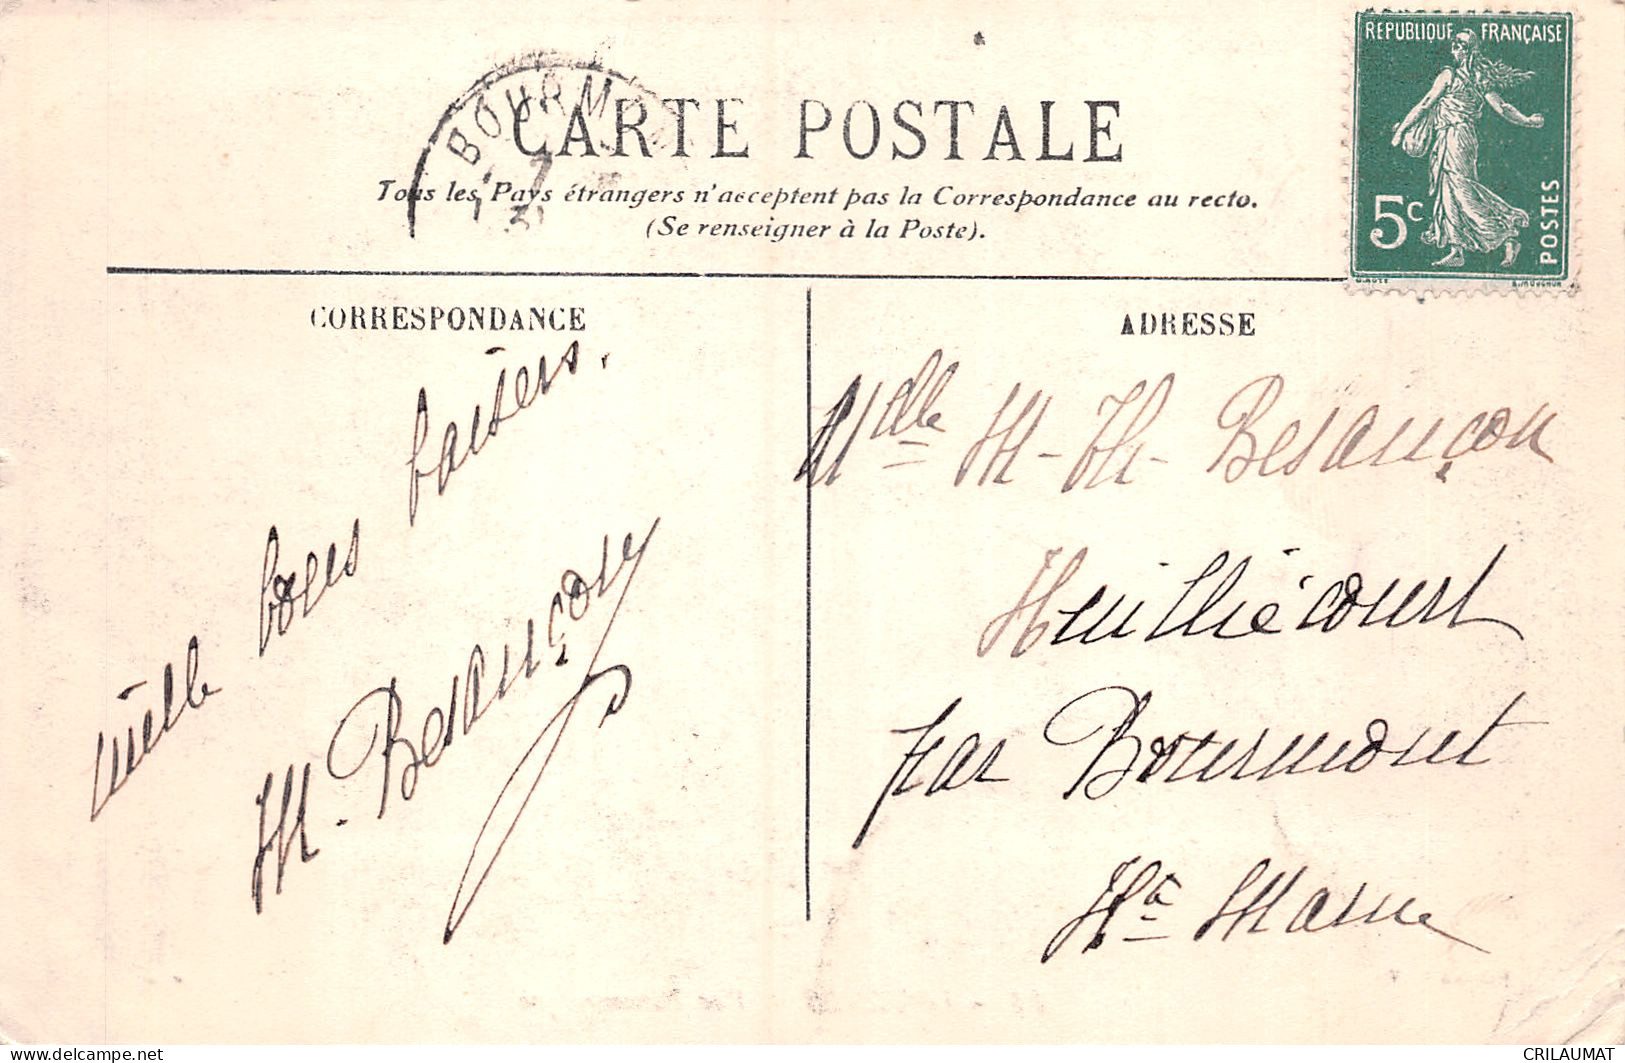 RÉPUBLIQUE FRANÇAISE
5c
POSTES
BOURM
7
31
CARTE POSTALE
Tous les Pays étrangers n'acceptent pas la Correspondance au recto.
(Se renseigner à la Poste).
CORRESPONDANCE
mille bons baisers.
M. Besançon
ADRESSE
Mdlle M-Th- Besançon
Huilliécourt
par Bourmont
Hte Marne
www.delcampe.net
CRILAUMAT